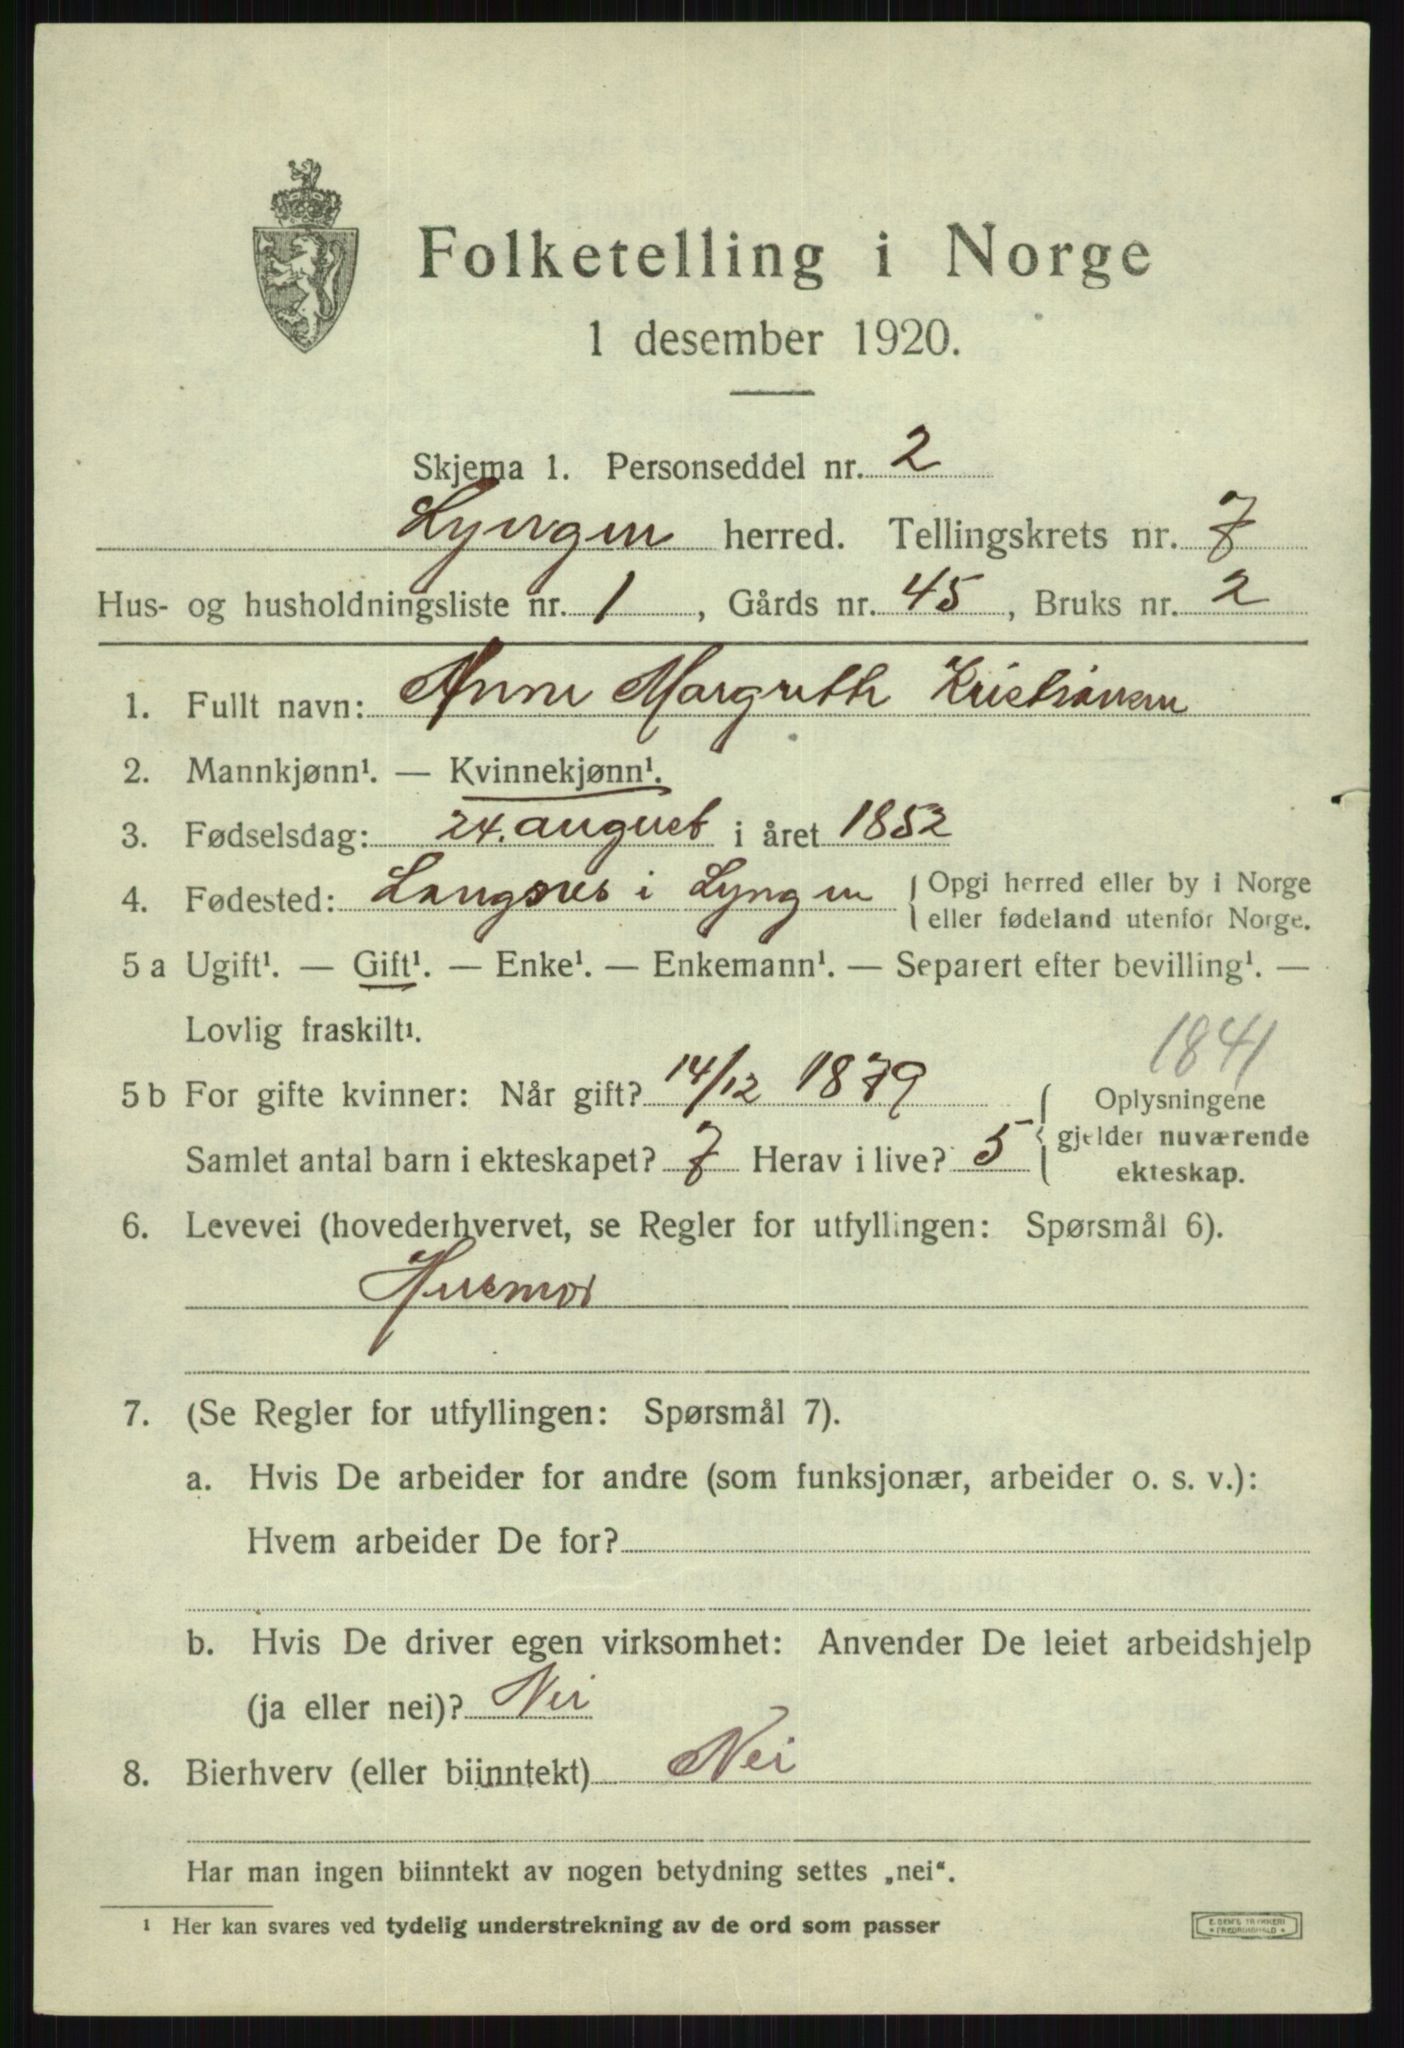 Folketelling i Norge
1 desember 1920.
Skjema 1. Personseddel nr. 2
Lyngen herred. Tellingskrets nr. 7
Hus- og husholdningsliste nr. 1, Gårds nr. 45, Bruks nr. 2
1. Fullt navn: Anne Margreth Kristiansen
2. Mannkjønn¹. — Kvinnekjønn¹.
3. Fødselsdag: 24. august i året 1852
4. Fødested: Langnes i Lyngen { Opgi herred eller by i Norge
eller fødeland utenfor Norge.
5 a Ugift¹. — Gift¹. — Enke¹. — Enkemann¹. — Separert efter bevilling¹. —
Lovlig fraskilt¹.
1841
5 b For gifte kvinner: Når gift? 14/12 1879
Samlet antal barn i ekteskapet? 7 Herav i live? 5
{ Oplysningene
gjelder nuværende
ekteskap.
6. Levevei (hovederhvervet, se Regler for utfyllingen: Spørsmål 6).
Husmor
7. (Se Regler for utfyllingen: Spørsmål 7).
a. Hvis De arbeider for andre (som funksjonær, arbeider o. s. v.):
Hvem arbeider De for?
b. Hvis De driver egen virksomhet: Anvender De leiet arbeidshjelp
(ja eller nei)? Nei
8. Bierhverv (eller biinntekt) Nei
Har man ingen biinntekt av nogen betydning settes „nei".
¹ Her kan svares ved tydelig understrekning av de ord som passer